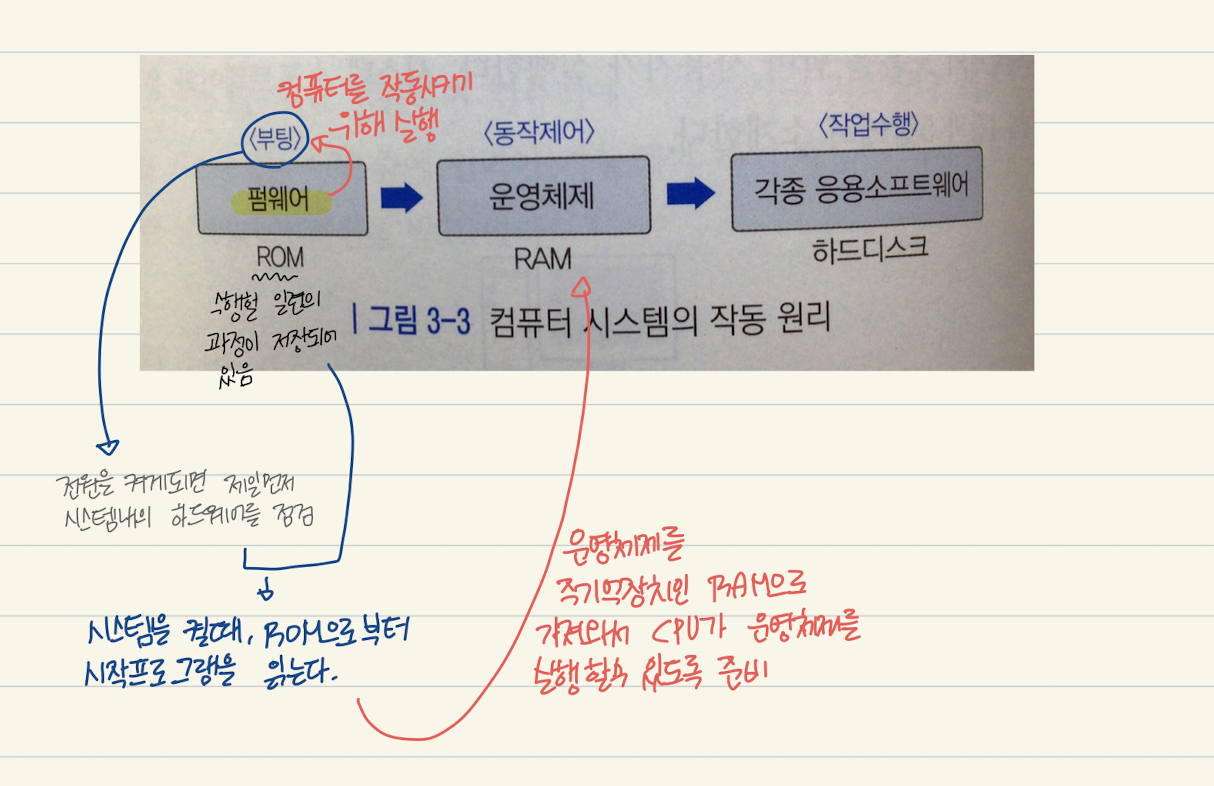 컴퓨터를 작동시키기
위해 실행
<부팅>
<동작제어>
<작업수행>
펌웨어
운영체제
각종 응용소프트웨어
ROM
RAM
하드디스크
일련의
과정이 저장되어
있음
그림 3-3 컴퓨터 시스템의 작동 원리
전원을 켜게되면 제일먼저
시스템내의 하드웨어를 점검
시스템을 켤때, ROM으로부터
시작프로그램을 읽는다.
운영체제를
주기억장치인 RAM으로
가져와서 CPU가 운영체제를
실행할수 있도록 준비